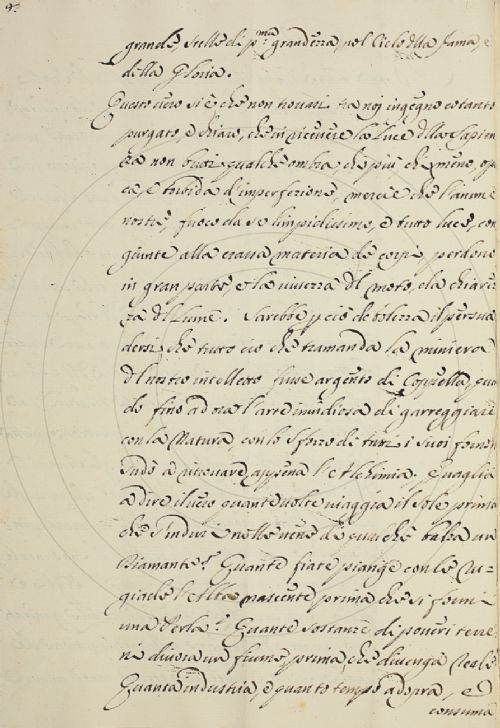 grande, stelle di p.ma grandezza, nel Cielo dlla fama, e
della Gloria.
Questo vero si è che non trovasi tra noj ingegno cotanto
purgato, e chiaro, che in ricevere la luce dlla Sapien
za non butti qualche ombra, che più che meno, opa
ca, e torbida d'imperfezione, mercè che l'anime
nostre, fuoco da se limpidissimo, e tutto luce, con
giunte alla crassa materia de corpi, perdono
in gran parte e la vivezza dl moto, e la chiarez
za dl Lume. Sarebbe p ciò debolezza il persua
dersi, che tutto ciò che tramanda la miniera
dl nostro intelletto fusse argento di Coppella, quan
do fino ad ora l'arte invidiosa di gareggiare
con la Natura, con lo sforzo di tutti i suoi fornelli
sudò a ritrovare appena l'Alchimia. E vaglia
a dire il vero quante volte viaggia il Sole prima
che s'induri nelle vene di qualche balza un
Diamante? Quante fiate piange con le Ru=
giade l'Alba nascente prima che si formi
una Perla? Quante sostanze di poveri terre
ni divora un fiume prima che divenga Reale
Quanta industria, e quanto tempo adopra, ed
consuma